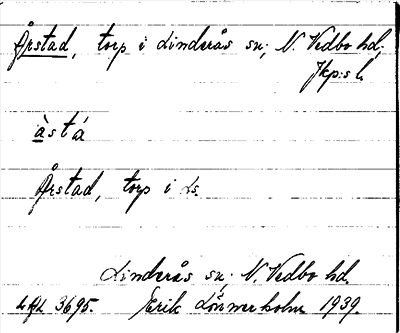 Årstad, torp i Linderås sn, N. Vedbo hd,
Jkp:s l.
àstá
Årstad, torp i Ls.
Linderås sn, N. Vedbo hd.
3695. Erik Lönnerholm 1939.